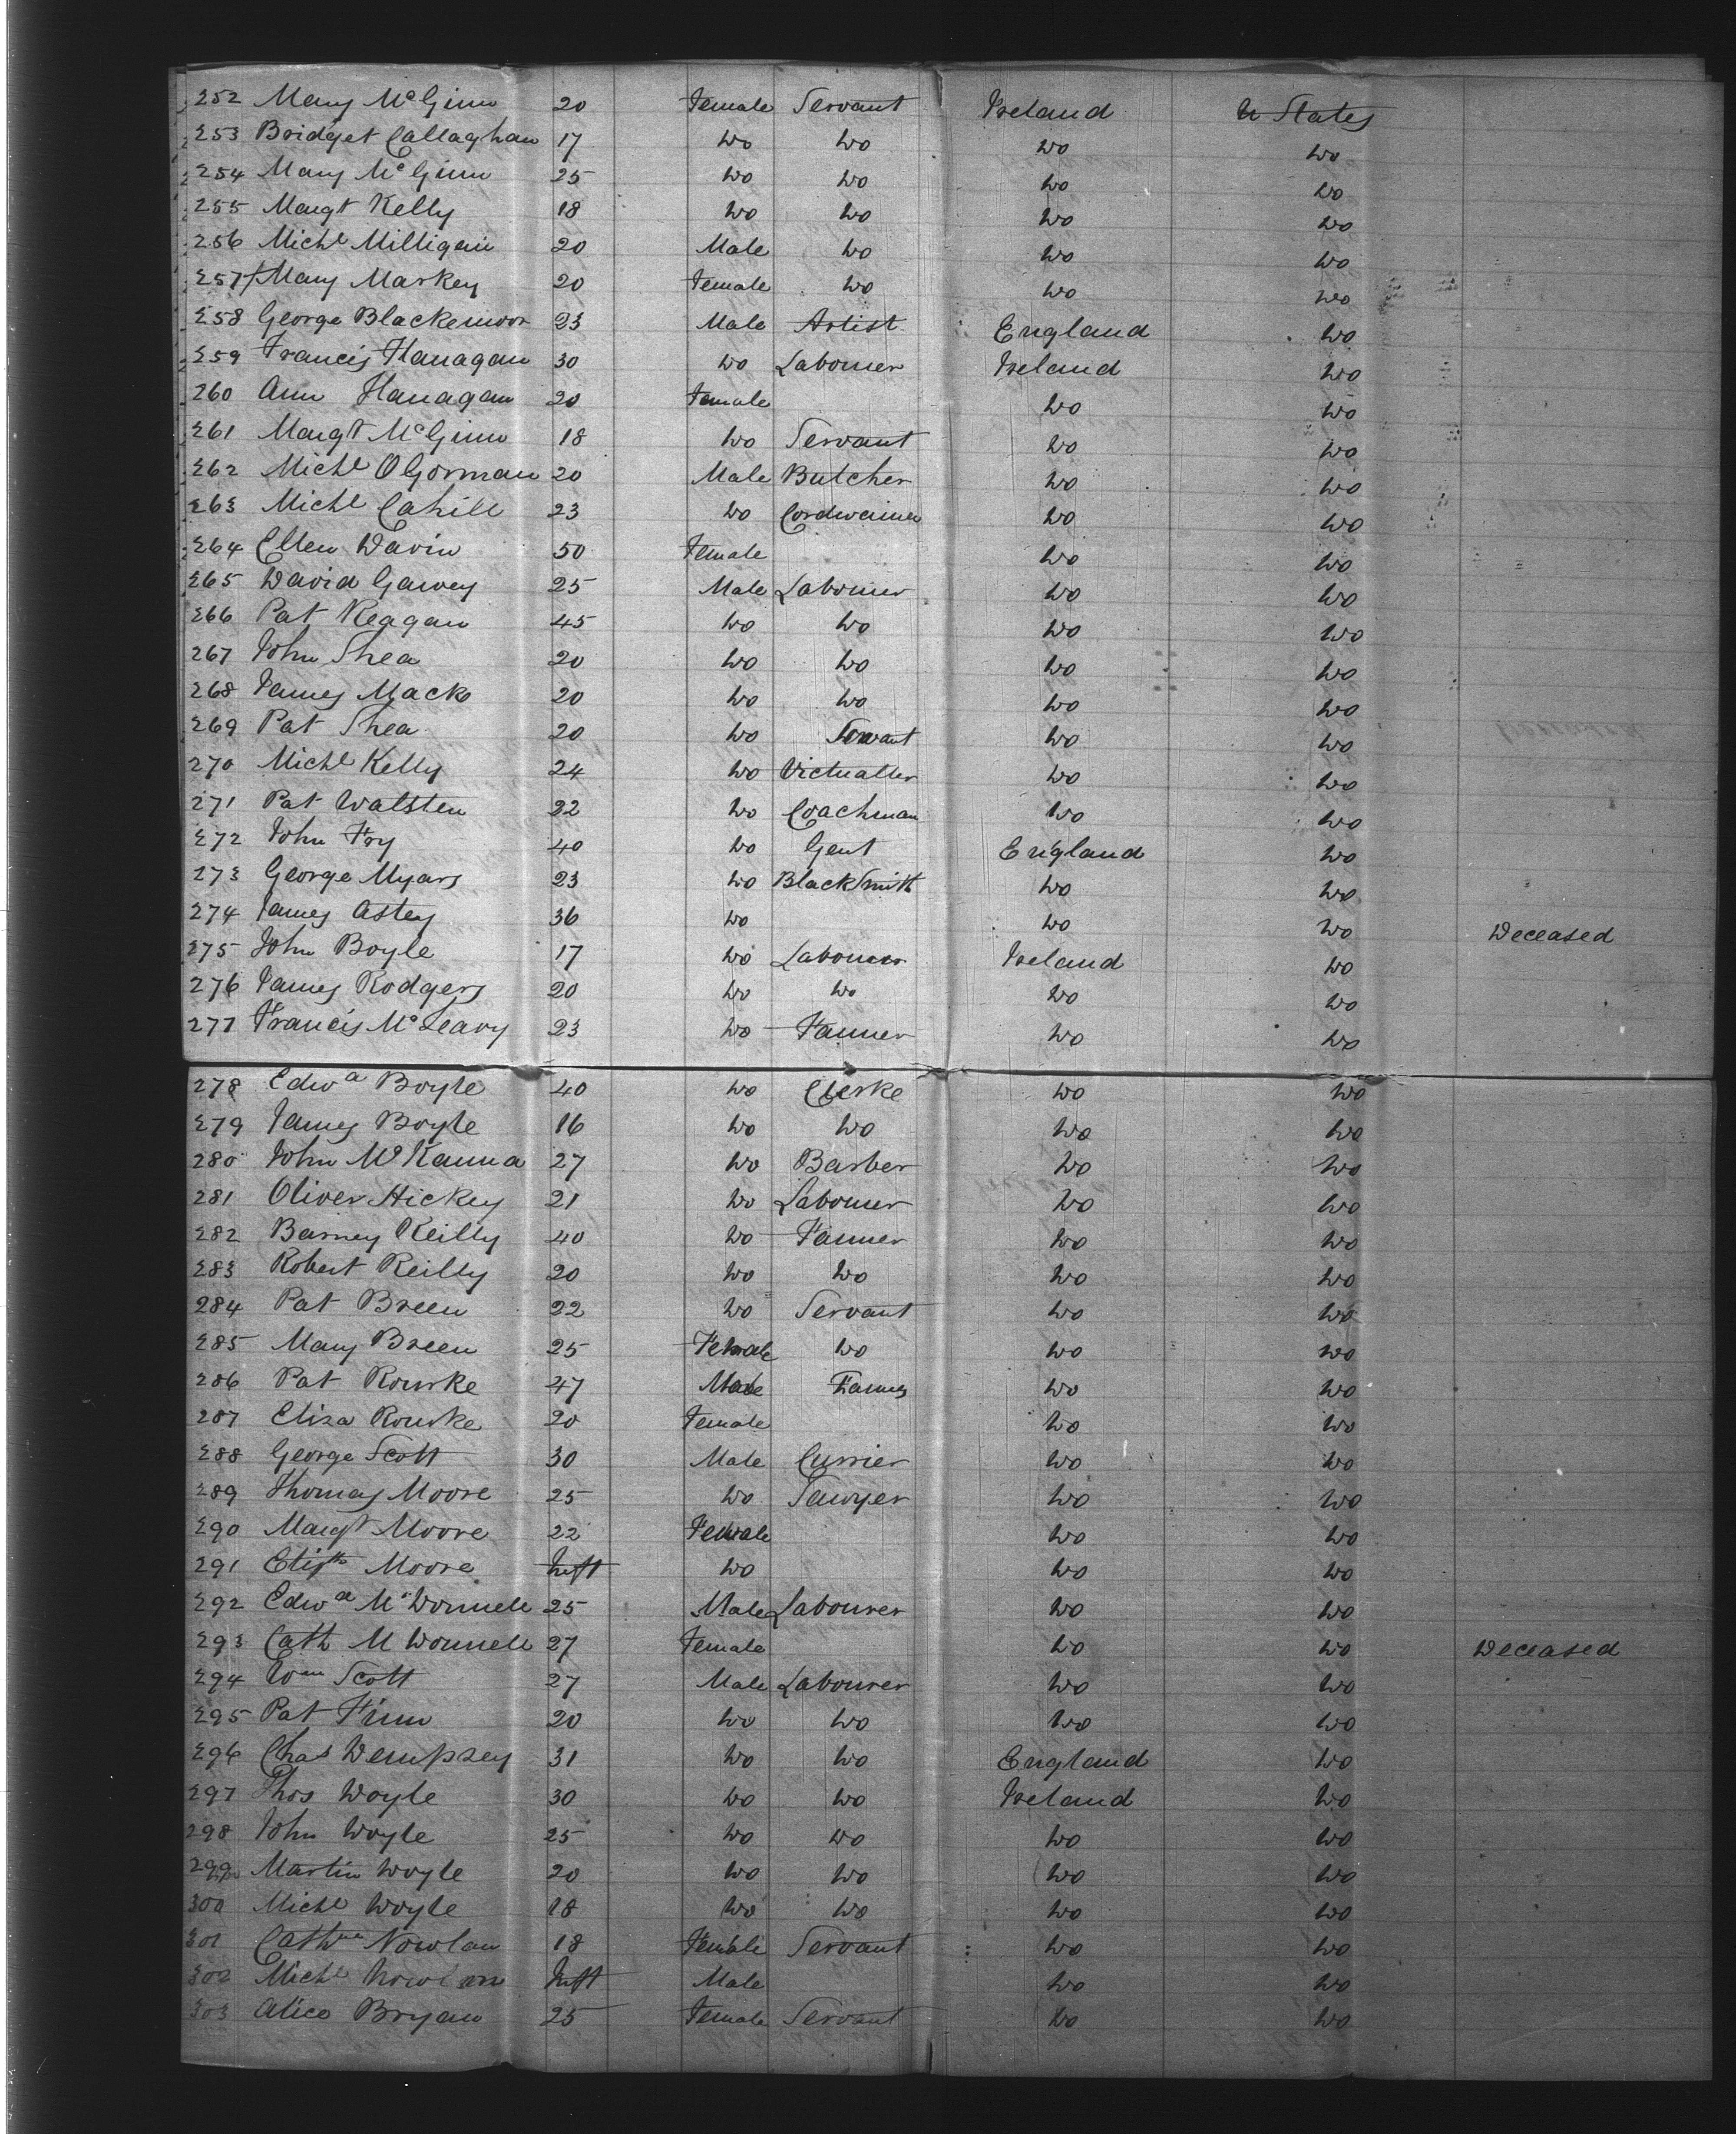 252 Mary McGinn 20 Female Servant Ireland U States
253 Bridget Callaghan 17 Do Do Do Do
254 Mary McGinn 25 Do Do Do Do
255 Margt Kelly 18 Do Do Do Do
256 Michl Milligain 20 Male Do Do Do
257 Mary Markey 20 Female Do Do Do
258 George Blackemoor 23 Male Artist England Do
259 Francis Flanagan 30 Do Labourer Ireland Do
260 Ann Flanagan 20 Female Do Do
261 Margt McGinn 18 Do Servant Do Do
262 Michl OGorman 20 Male Butcher Do Do
263 Michl Cahill 23 Do Cordwainer Do Do
264 Ellen Davin 50 Female Do Do
265 David Garvey 25 Male Labourer Do Do
266 Pat Reagan 45 Do Do Do Do
267 John Shea 20 Do Do Do Do
268 James Mack 20 Do Do Do Do
269 Pat Shea 20 Do Servant Do Do
270 Michl Kelly 24 Do Victualler Do Do
271 Pat Walsten 22 Do Coachman Do Do
272 John Fry 40 Do Gent England Do
273 George Myars 23 Do BlackSmith Do Do
274 James Astey 36 Do Do Do Deceased
275 John Boyle 17 Do Labourer Ireland Do
276 James Rodgers 20 Do Do Do Do
277 Francis McLeavy 23 Do Farmer Do Do
278 Edwd Boyle 40 Do Clerke Do Do
279 James Boyle 16 Do Do Do Do
280 John McKanna 27 Do Barber Do Do
281 Oliver Hickey 21 Do Labourer Do Do
282 Barney Reilly 40 Do Farmer Do Do
283 Robert Reilly 20 Do Do Do Do
284 Pat Breen 22 Do Servant Do Do
285 Mary Breen 25 Female Do Do Do
286 Pat Rourke 47 Male Farmer Do Do
287 Eliza Rourke 20 Female Do Do
288 George Scott 30 Male Currier Do Do
289 Thomas Moore 25 Do Sawyer Do Do
290 Margt Moore 22 Female Do Do
291 Elizth Moore Inft Do Do Do
292 Edwd McDonnell 25 Male Labourer Do Do
293 Cath McDonnell 27 Female Do Do Deceased
294 Wm Scott 27 Male Labourer Do Do
295 Pat Finn 20 Do Do Do Do
296 Chas Dempsey 31 Do Do England Do
297 Thos Doyle 30 Do Do Ireland Do
298 John Doyle 25 Do Do Do Do
299 Martin Doyle 20 Do Do Do Do
300 Michl Doyle 18 Do Do Do Do
301 Cathne Nowlan 18 Female Servant Do Do
302 Michl Nowlan Inft Male Do Do
303 Alice Bryan 25 Female Servant Do Do